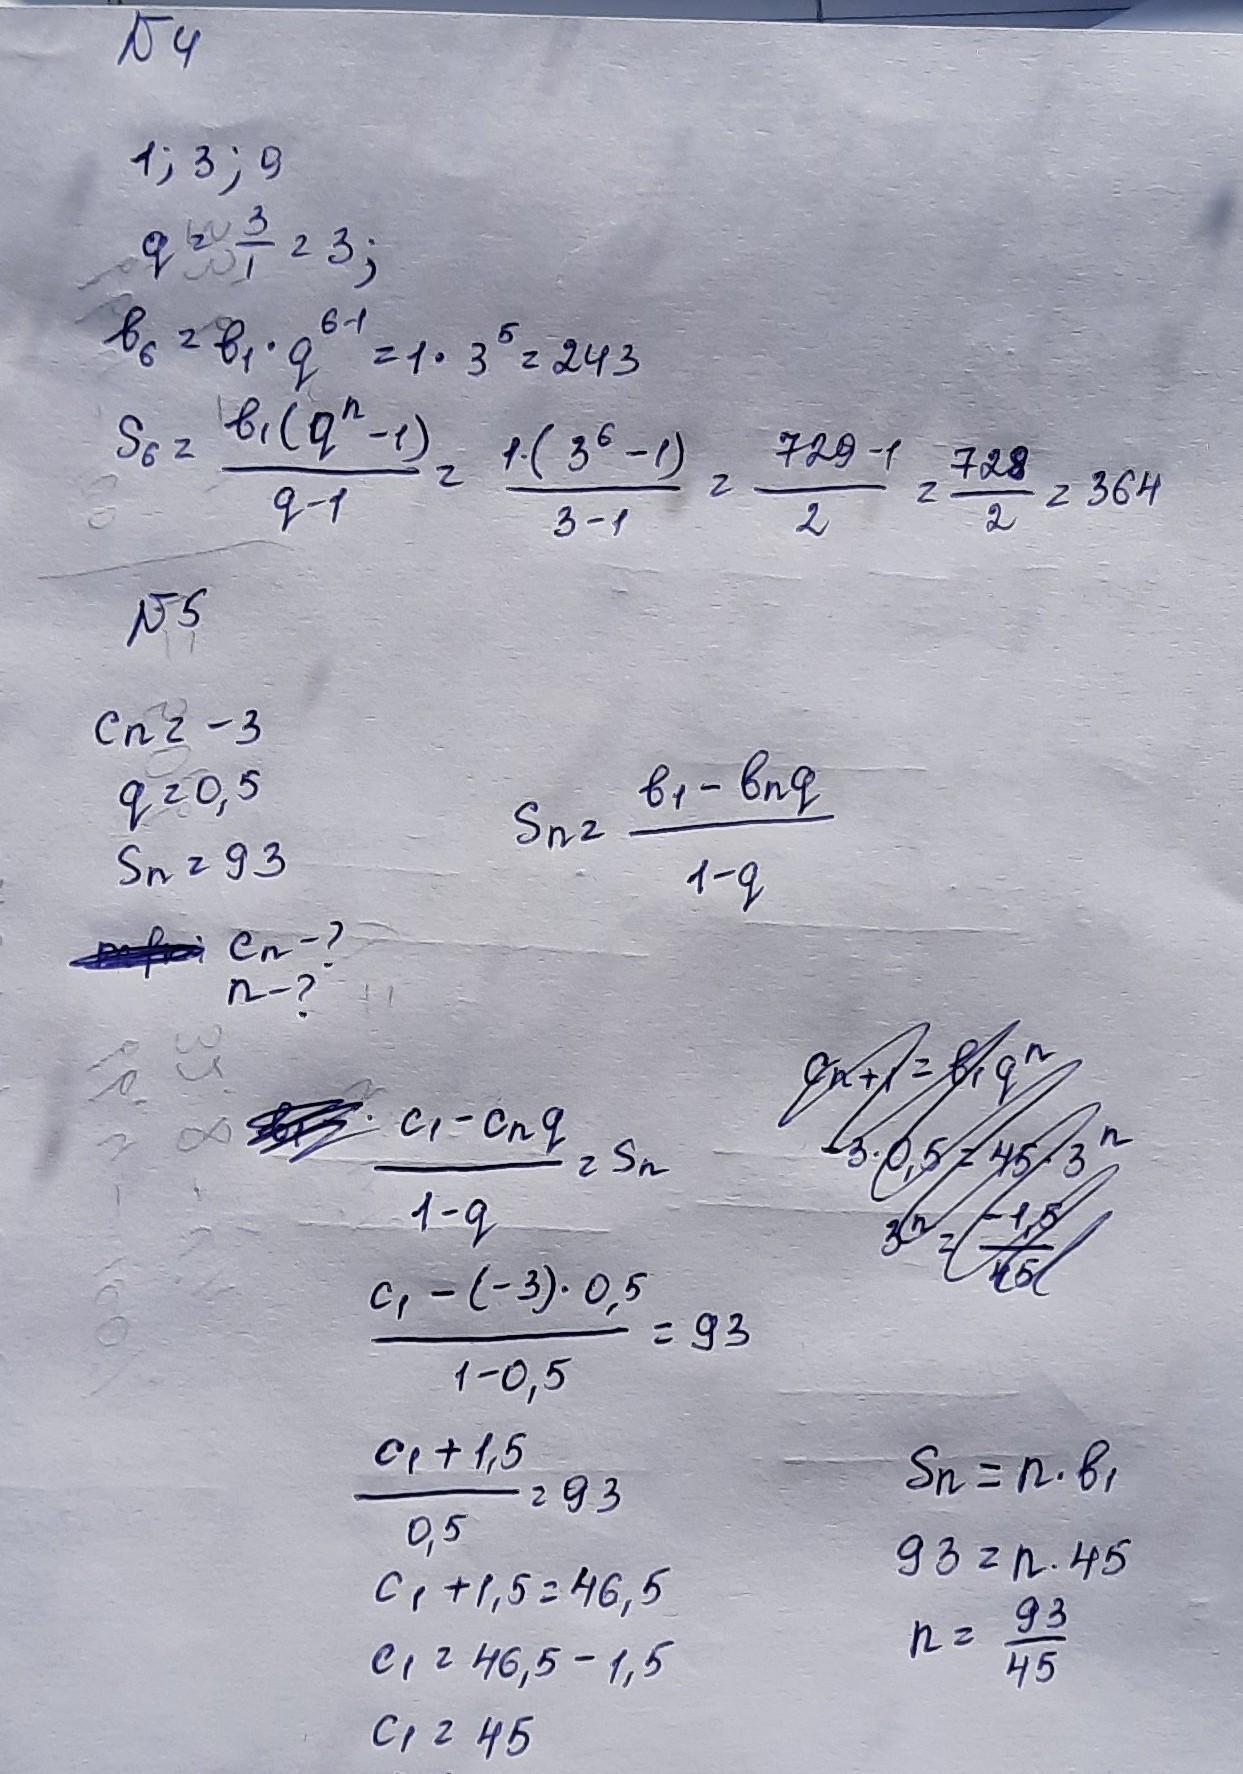 №4
1; 3; 9
q = 3/1 = 3;
b₆ = b₁ · q⁶⁻¹ = 1 · 3⁵ = 243
S₆ = b₁(qⁿ - 1)/q - 1 = 1·(3⁶ - 1)/3 - 1 = 729 - 1/2 = 728/2 = 364
№5
cn = -3
q = 0,5
Sn = 93
Sn = b₁ - bnq/1 - q
cn - ?
n - ?
c₁ - cnq/1 - q = Sn
c₁ - (-3) · 0,5/1 - 0,5 = 93
c₁ + 1,5/0,5 = 93
c₁ + 1,5 = 46,5
c₁ = 46,5 - 1,5
c₁ = 45
cn+1 = b₁qⁿ
-3 · 0,5 = 45 · 3ⁿ
3ⁿ = -1,5/45
Sn = n · b₁
93 = n · 45
n = 93/45